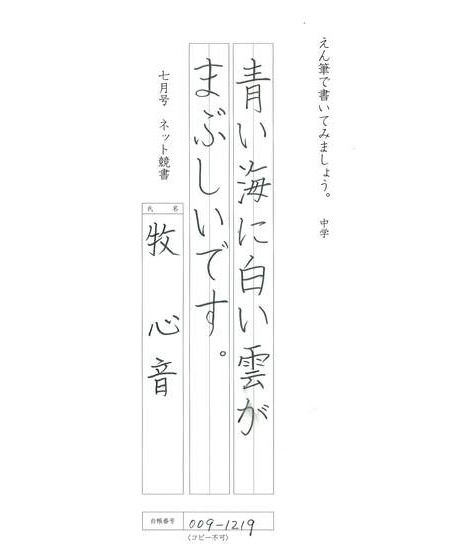 えん筆で書いてみましょう。 中学
青い海に白い雲が
まぶしいです。
七月号 ネット競書
氏名
牧 心音
台帳番号 009-1219
(コピー不可)